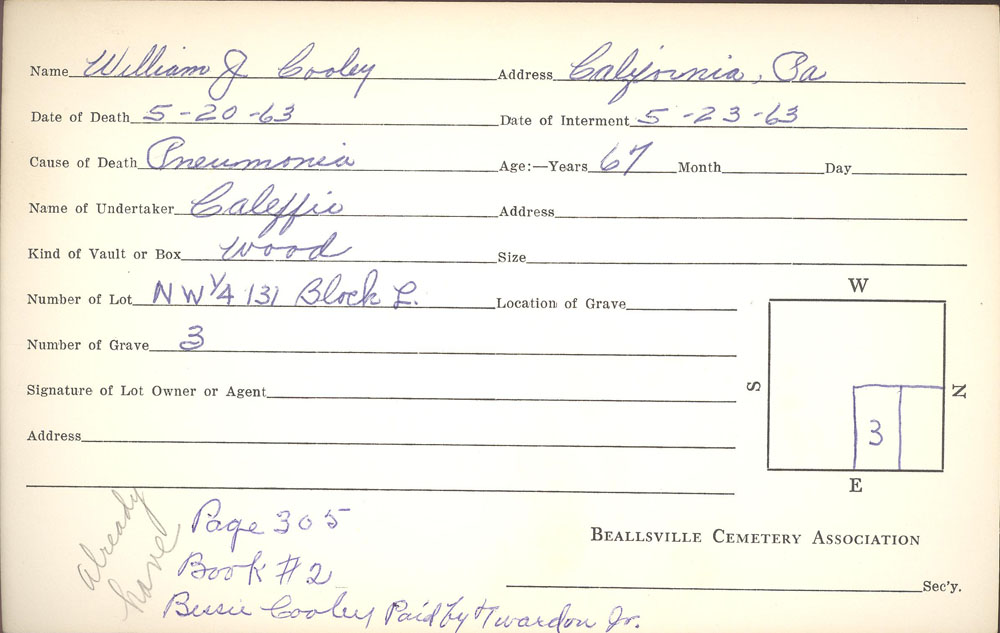 Name William J Cooley Address California, Pa
Date of Death 5-20-63 Date of Interment 5-23-63
Cause of Death Pneumonia Age:—Years 67 Month Day
Name of Undertaker Caleffie Address
Kind of Vault or Box Wood Size
Number of Lot NW 1/4 131 Block L. Location of Grave
Number of Grave 3
Signature of Lot Owner or Agent
Address
W
S
N
3
E
already
have
Page 305
Book #2
Bessie Cooley Paid by Twardon Jr.
BEALLSVILLE CEMETERY ASSOCIATION
Sec'y.